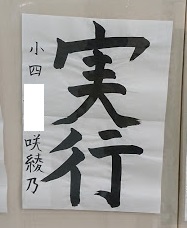 実行
小四 咲綾乃